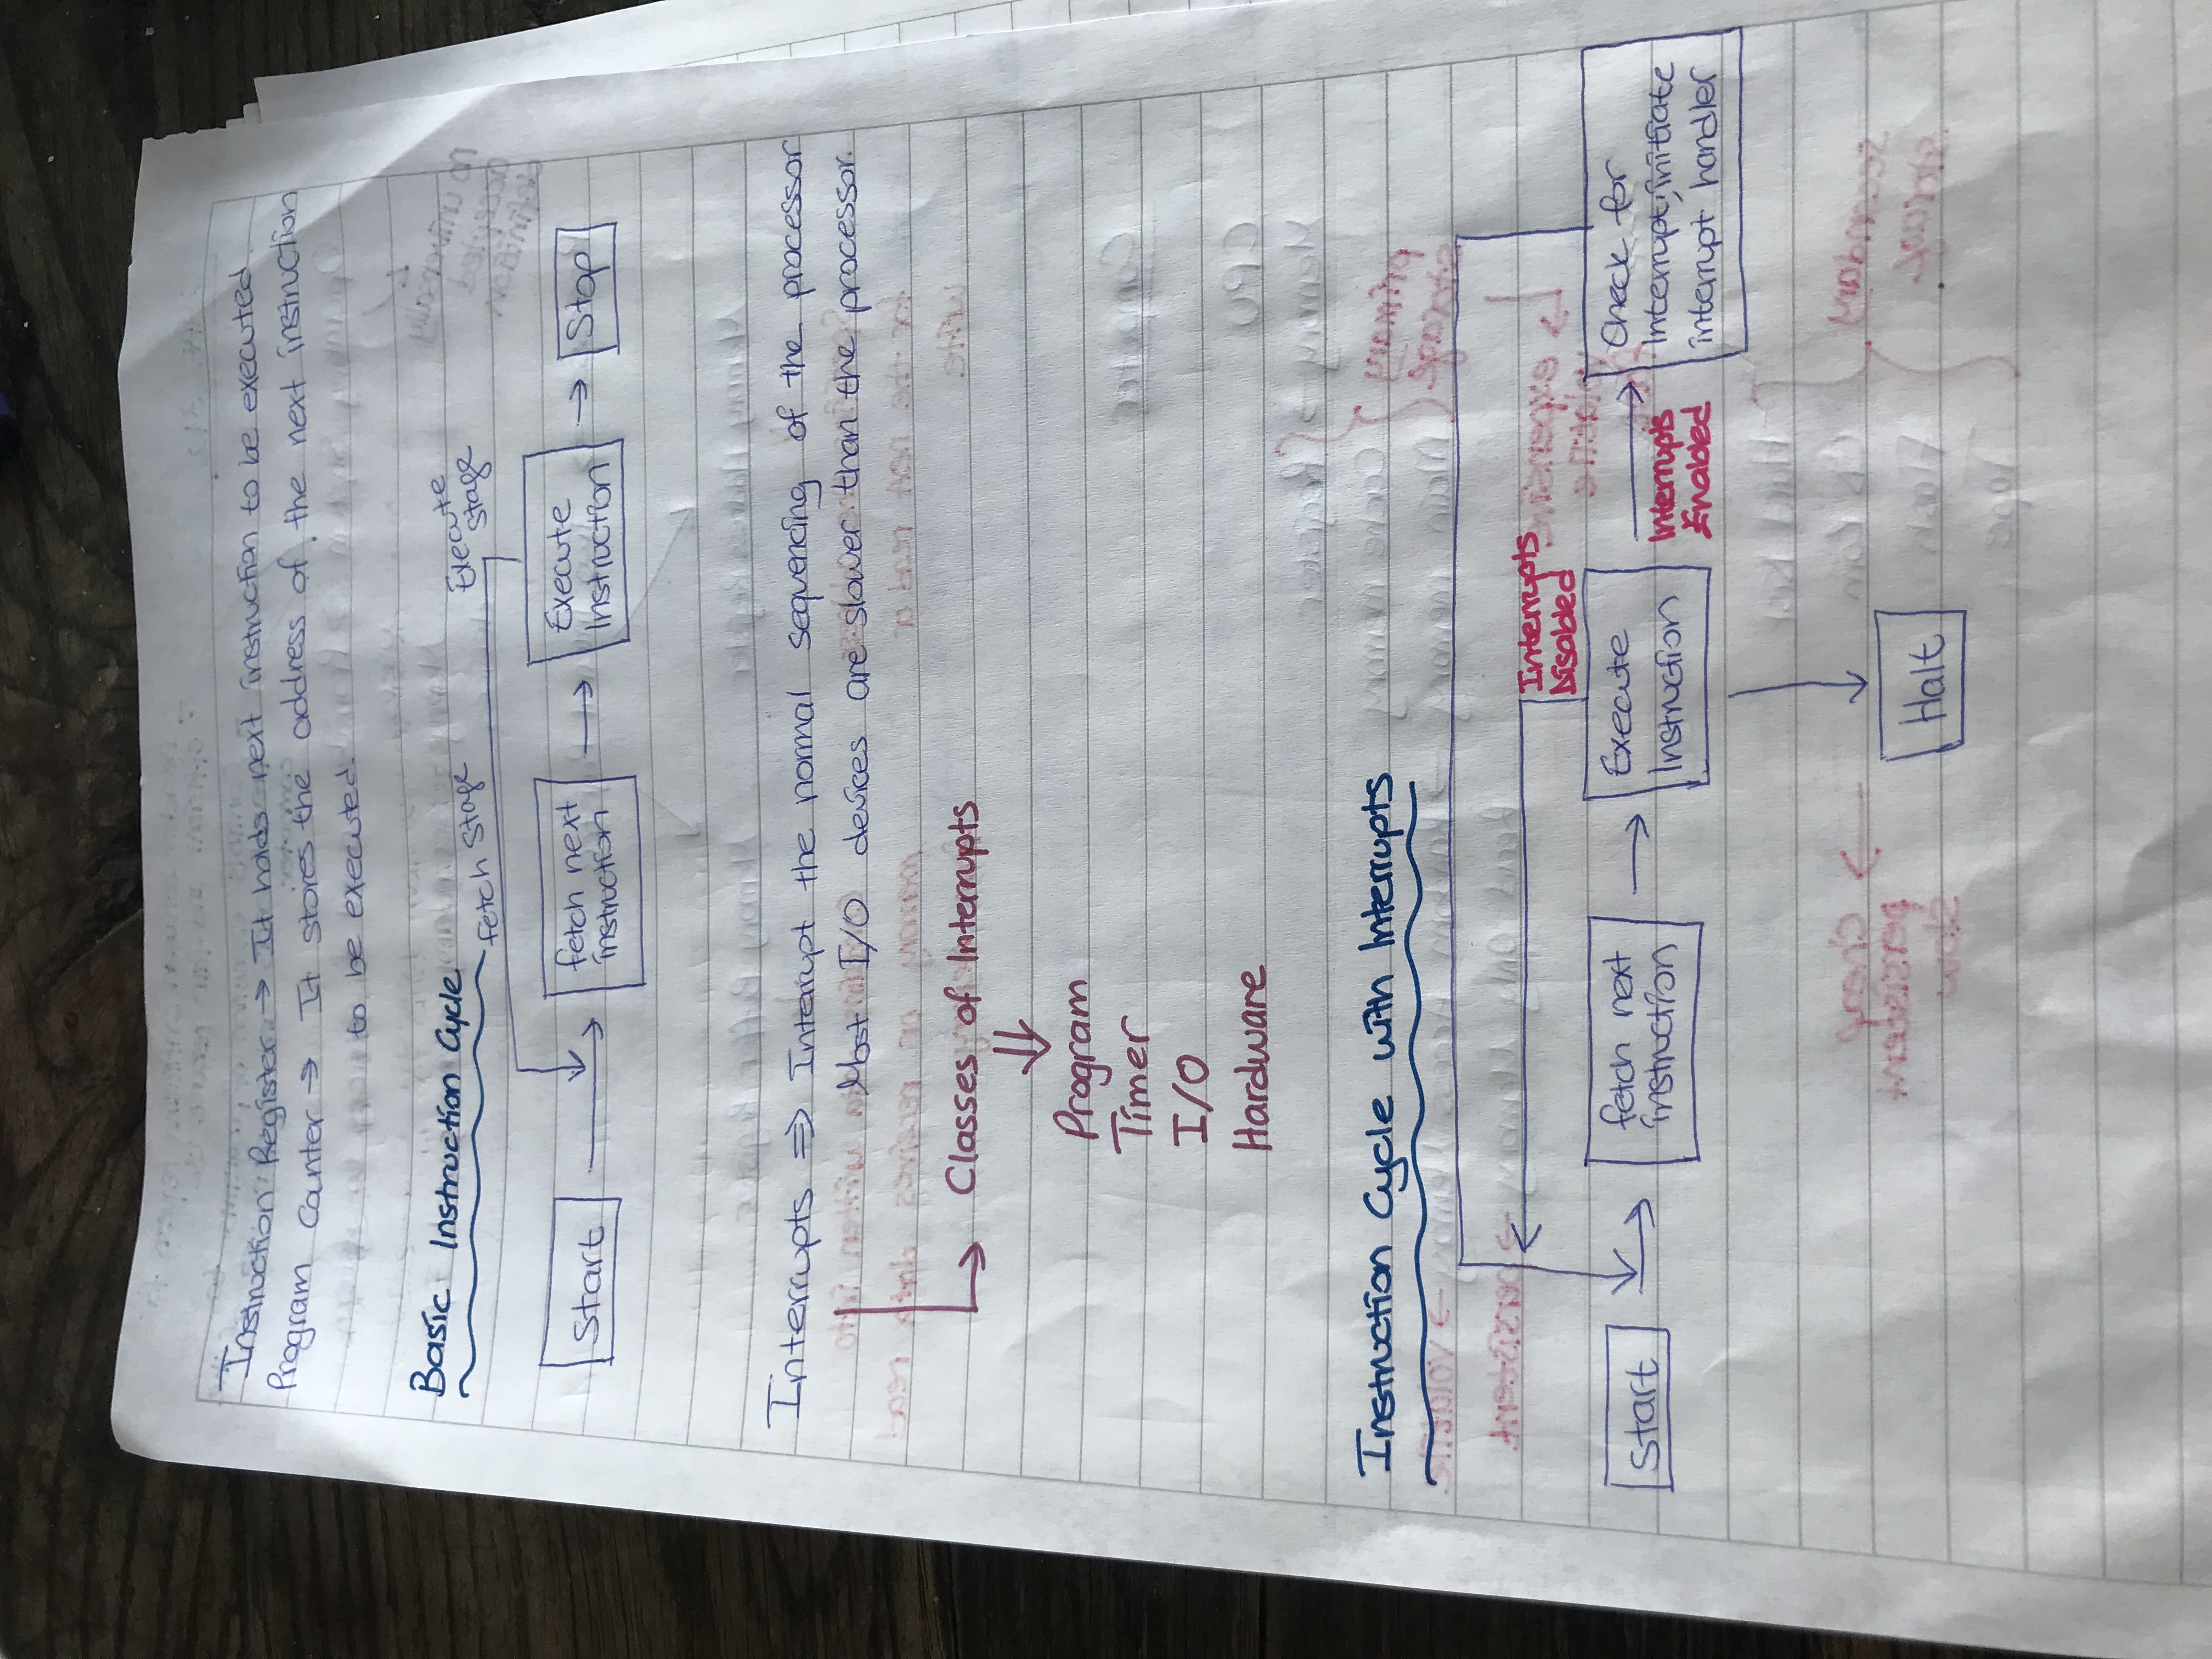 Instruction Register → It holds next instruction to be executed.
Program Counter → It stores the address of the next instruction
to be executed.
Basic Instruction Cycle
fetch stage
Execute
stage
Start
fetch next
instruction
Execute
Instruction
Stop
Interrupts ⇒ Interrupt the normal sequencing of the processor
Most I/O devices are slower than the processor.
Classes of Interrupts
Program
Timer
I/O
Hardware
Instruction Cycle with Interrupts
Interrupts
Disabled
Start
fetch next
instruction
Execute
Instruction
Interrupts
Enabled
Check for
Interrupt; initiate
interrupt handler
Halt